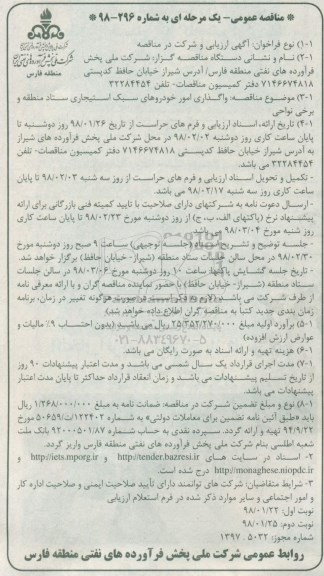 * مناقصه عمومی- یک مرحله ای به شماره ۲۹۶-۹۸ *
۱-۱) نوع فراخوان: آگهی ارزیابی و شرکت در مناقصه
۲-۱) نام و نشانی دستگاه مناقصه گزار: شرکت ملی پخش
فرآورده های نفتی منطقه فارس/ آدرس شیراز خیابان حافظ کدپستی
۷۱۴۶۶۷۴۸۱۸ دفتر کمیسیون مناقصات- تلفن ۳۲۲۸۴۴۵۴
شرکت ملی پخش فرآورده های نفتی ایران
منطقه فارس
۳-۱) موضوع مناقصه: واگذاری امور خودروهای سبک استیجاری ستاد منطقه و
برخی نواحی
۴-۱) تاریخ ارائه، اسناد ارزیابی و فرم های حراست از تاریخ ۹۸/۰۱/۲۶ روز دوشنبه تا
پایان ساعت کاری روز دوشنبه ۹۸/۰۲/۰۲ در محل شرکت ملی پخش فرآورده های شیراز
به آدرس شیراز خیابان حافظ کدپستی ۷۱۴۶۶۷۴۸۱۸ دفتر کمیسیون مناقصات- تلفن
۳۲۲۸۴۴۵۴ می باشد.
- تکمیل و تحویل اسناد ارزیابی و فرم های حراست از روز سه شنبه ۹۸/۰۲/۰۳ تا پایان
ساعت کاری روز سه شنبه ۹۸/۰۲/۱۷ می باشد.
- ارسال دعوت نامه به شرکتهای دارای صلاحیت با تایید کمیته فنی بازرگانی برای ارائه
پیشنهاد نرخ (پاکتهای الف، ب، ج) از روز دوشنبه مورخ ۹۸/۰۲/۲۳ تا پایان ساعت کاری
روز شنبه مورخ ۹۸/۰۳/۰۴ می باشد.
- جلسه توضیح و تشریح اسناد (جلسه توجیهی) ساعت ۹ صبح روز دوشنبه مورخ
۹۸/۰۲/۳۰ در محل سالن جلسات ستاد منطقه (شیراز- خیابان حافظ) برگزار خواهد شد.
- تاریخ جلسه گشایش پاکتها ساعت ۱۰ روز دوشنبه مورخ ۹۸/۰۳/۰۶ در سالن جلسات
ستاد منطقه (شیراز- خیابان حافظ) با حضور نماینده مناقصه گران و با ارائه معرفی نامه
از طرف شرکت می باشد. (لازم به ذکر است در صورت هرگونه تغییر در زمان، برنامه
زمان بندی جدید کتبا به مناقصه گران اطلاع داده خواهد شد)
۵-۱) برآورد اولیه مبلغ ۲۵/۳۵۲/۲۷۰/۰۰۰ ریال می باشد. (بدون احتساب ۹٪ مالیات و
عوارض ارزش افزوده)
۶-۱) هزینه تهیه و ارائه اسناد به صورت رایگان می باشد.
۷-۱) مدت اجرای قرارداد یک سال شمسی می باشد و مدت اعتبار پیشنهادات ۹۰ روز
از تاریخ تسلیم پیشنهادات می باشد و زمان انعقاد قرارداد حداکثر تا پایان مدت اعتبار
پیشنهادات می باشد.
۸-۱) نوع و مبلغ تضمین شرکت در مناقصه: ضمانت نامه به مبلغ ۱/۲۶۸/۰۰۰/۰۰۰ ریال
باید «طبق آئین نامه تضمین برای معاملات دولتی» به شماره ۱۲۳۴۰۲/ت۵۰۶۵۹ مورخ
۹۴/۹/۲۲ تهیه و ارائه گردد. سپرده نقدی به حساب شماره ۹۲۰۰۰۵۰۱/۸۷ بانک ملت
شعبه اطلسی بنام شرکت ملی پخش فرآورده های نفتی منطقه فارس واریز گردد.
۲- اسناد در سایت های http://tender.bazresi.ir و http://iets.mporg.ir و
http://monaghese.niopdc.ir درج شده است.
۳- شرایط متقاضیان: شرکت های توانمند دارای تأیید صلاحیت ایمنی و صلاحیت اداره کار
و امور اجتماعی و سایر موارد ذکر شده در فرم استعلام ارزیابی
نوبت اول: ۹۸/۰۱/۲۲
نوبت دوم: ۹۸/۰۱/۲۵
شماره مجوز: ۵۰۳۲ . ۱۳۹۷
روابط عمومی شرکت ملی پخش فرآورده های نفتی منطقه فارس
۰۲۱-۸۸۳۴۹۶۷۰-۵